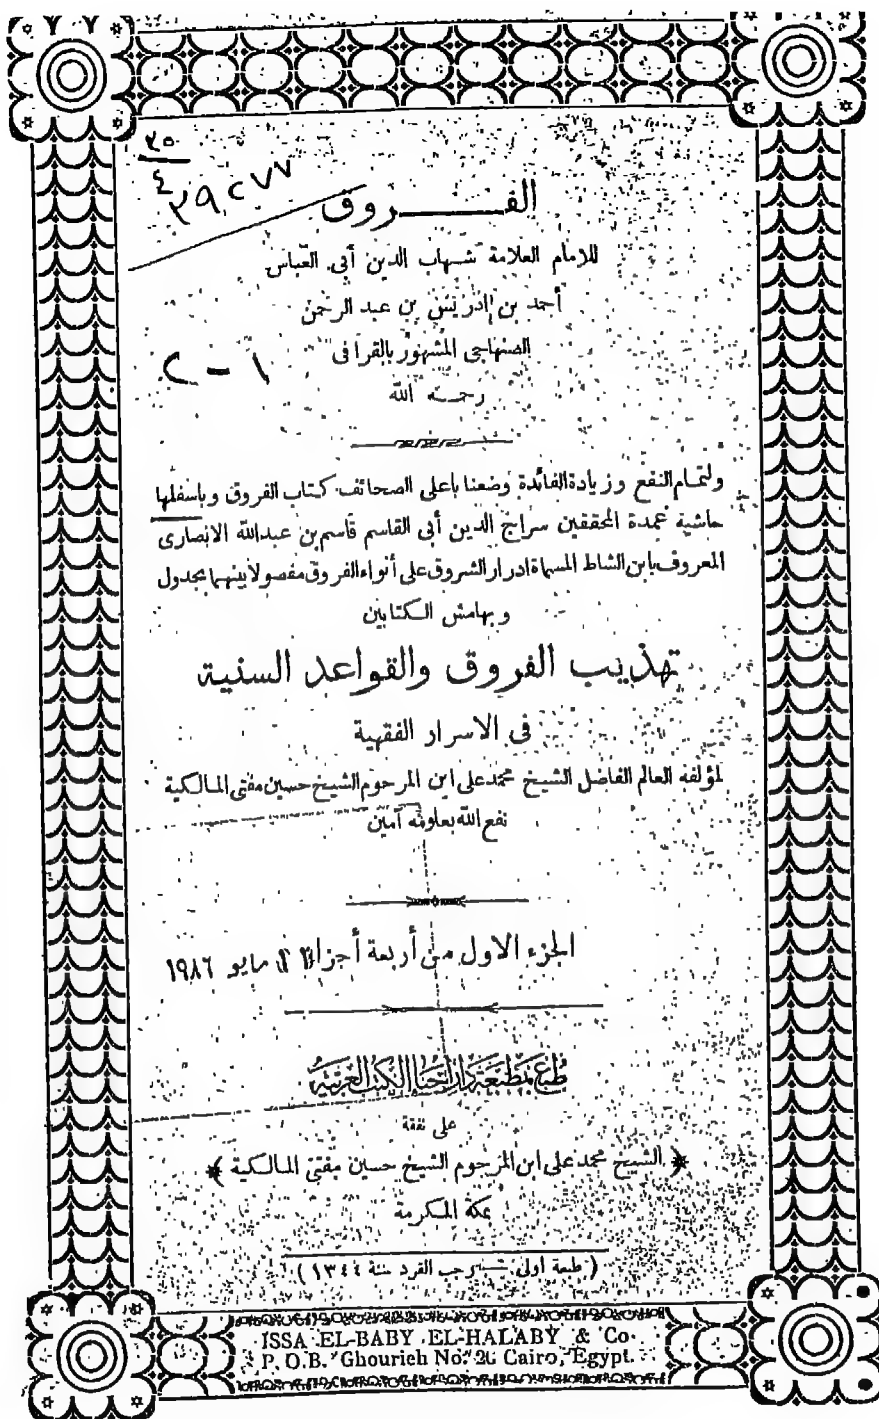 ٢٥
٤
٢٩٢٧٧
الفـــــروق
للامام العلامة شهاب الدين أبى العباس
أحمد بن إدريس بن عبد الرحمن
الصنهاجى المشهور بالقرافى
١ - ٢
رحمه الله
ولتمام النفع وزيادة الفائدة وضعنا باعلى الصحائف كتاب الفروق وباسفلها
حاشية عمدة المحققين سراج الدين أبى القاسم قاسم بن عبدالله الانصارى
المعروف بابن الشاط المسماة ادرار الشروق على أنواء الفروق مفصولا بينهما بجدول
وبهامش الكتابين
تهذيب الفروق والقواعد السنية
فى الاسرار الفقهية
لمؤلفه العالم الفاضل الشيخ محمد على ابن المرحوم الشيخ حسين مفتى المالكية
نفع الله بعلومه آمين
الجزء الاول من أربعة أجزاء
مايو ١٩٨٦
طبع بمطبعة دار احياء الكتب العربية
على نفقة
﴿ الشيخ محمد على ابن المرحوم الشيخ حسين مفتى المالكية ﴾
بمكة المكرمة
( طبعة أولى رجب الفرد سنة ١٣٤٤ )
ISSA EL-BABY EL-HALABY & Co.
P.O.B. Ghourieh No. 26 Cairo, Egypt.